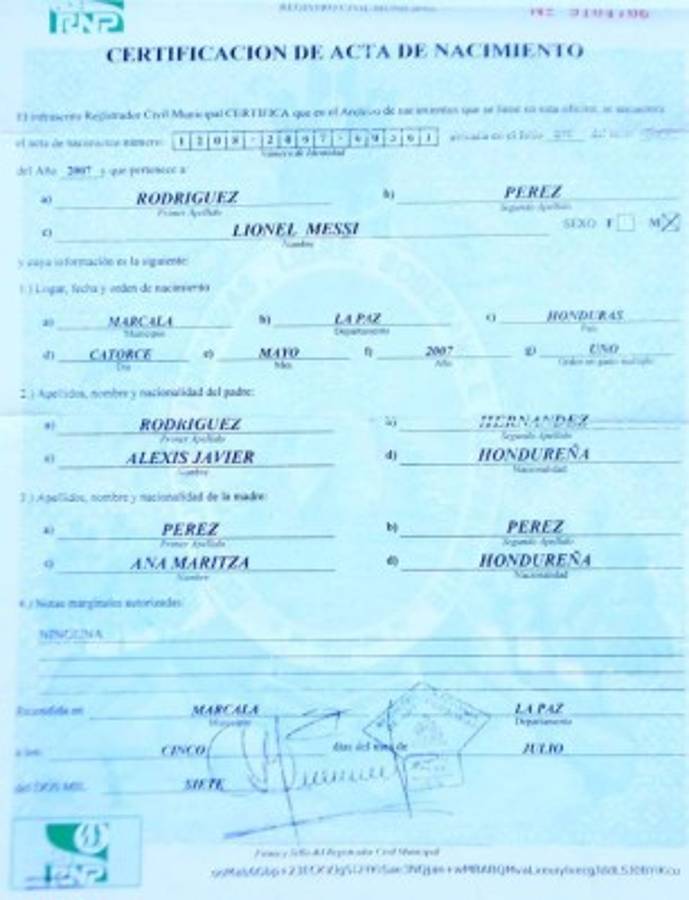 RNP
REGISTRO CIVIL MUNICIPAL
CERTIFICACION DE ACTA DE NACIMIENTO
El infrascrito Registrador Civil Municipal CERTIFICA que en el Archivo de nacimientos que se lleva en esta oficina, se encuentra
el acta de nacimiento número:
Número de Identidad
del Año 2007 y que pertenece a:
a) RODRIGUEZ b) PEREZ
Primer Apellido Segundo Apellido
c) LIONEL MESSI SEXO F M X
Nombre
y cuya información es la siguiente:
1.) Lugar, fecha y orden de nacimiento
a) MARCALA b) LA PAZ c) HONDURAS
Municipio Departamento País
d) CATORCE e) MAYO f) 2007 g) UNO
Día Mes Año Orden en parto múltiple
2.) Apellidos, nombre y nacionalidad del padre:
a) RODRIGUEZ b) HERNANDEZ
Primer Apellido Segundo Apellido
c) ALEXIS JAVIER d) HONDUREÑA
Nombre Nacionalidad
3.) Apellidos, nombre y nacionalidad de la madre:
a) PEREZ b) PEREZ
Primer Apellido Segundo Apellido
c) ANA MARITZA d) HONDUREÑA
Nombre Nacionalidad
4.) Notas marginales autorizadas:
NINGUNA
Extendida en MARCALA LA PAZ
Municipio Departamento
a los CINCO días del mes de JULIO
del DOS MIL SIETE
Firma y Sello del Registrador Civil Municipal
RNP